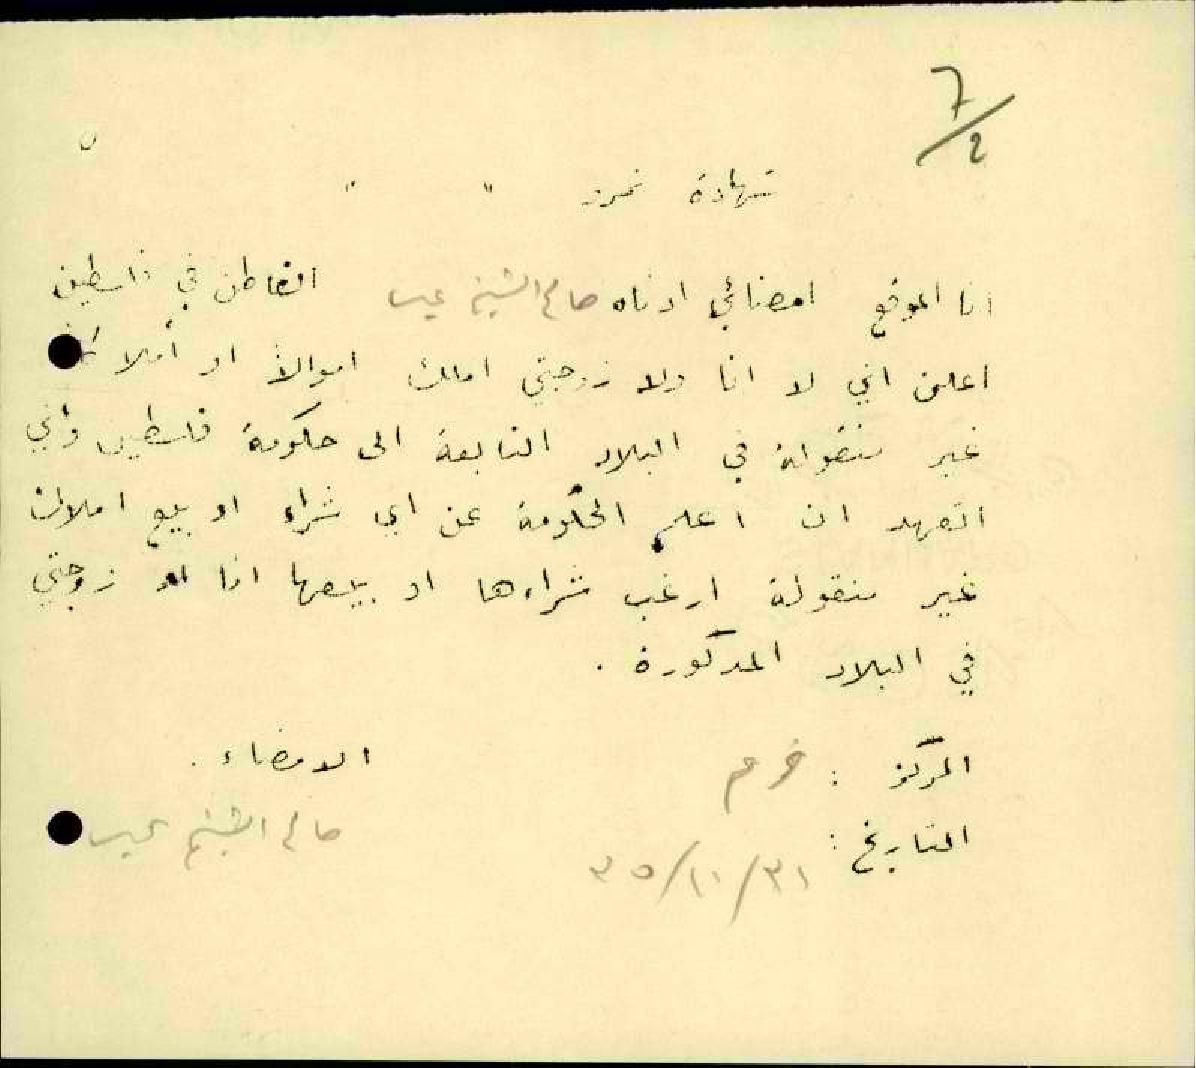 7/2
شهادة نمرة " "
انا الموقع امضائي ادناه صالح الشيخ عيد القاطن في فلسطين
اعلن اني لا انا ولا زوجتي املك اموالاً او أملاكاً
غير منقولة في البلاد التابعة الى حكومة فلسطين واني
اتعهد ان اعلم الحكومة عن اي شراء او بيع املاك
غير منقولة ارغب شراءها او بيعها انا او زوجتي
في البلاد المذكورة .
المركز : الامضاء .
التاريخ : ٣١/١٠/٣٥ صالح الشيخ عيد